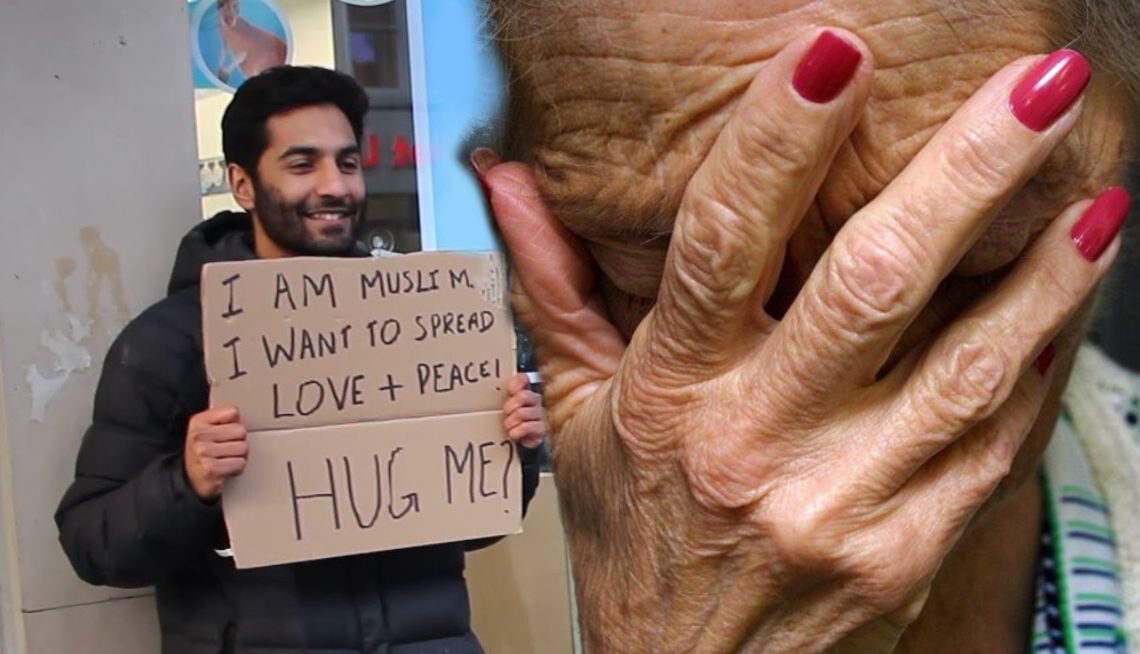 I AM MUSLIM.
I WANT TO SPREAD
LOVE + PEACE!
HUG ME?